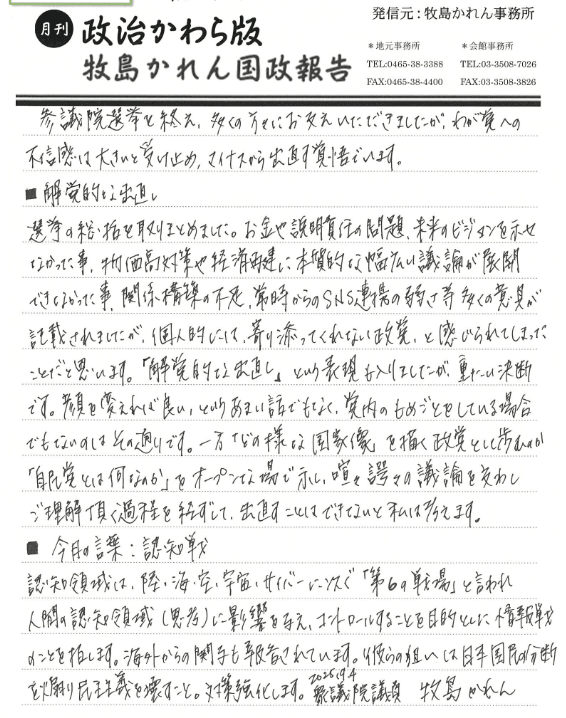 発信元：牧島かれん事務所
月刊 政治かわら版
牧島かれん国政報告
＊地元事務所 ＊会館事務所
TEL:0465-38-3388 TEL:03-3508-7026
FAX:0465-38-4400 FAX:03-3508-3826
参議院選挙を終え、多くの方々にお支えいただきましたが、わが党への
不信感は大きいと受け止め、マイナスから出直す覚悟でいます。
■ 解党的な出直し
選挙の総括を取りまとめました。お金や説明責任の問題、未来のビジョンを示せ
なかった事、物価高対策や経済再建に本質的な幅広い議論が展開
できなかった事、関係構築の不足、常時からのSNS連携の弱さ等多くの意見が
記載されましたが、個人的には、寄り添ってくれない政党、と感じられてしまった
ことだと思います。「解党的な出直し」という表現も入りましたが、重たい決断
です。顔を変えれば良い、というあまい話でもなく、党内のもめごとをしている場合
でもないのはその通りです。一方「どの様な国家像」を描く政党として歩むのか
「自民党とは何なのか」をオープンな場で示し、喧々諤々の議論を交わし
ご理解頂く過程を経ずして、出直すことはできないと私は考えます。
■ 今日の言葉：認知戦
認知領域は、陸・海・空・宇宙・サイバーに次ぐ「第6の戦場」と言われ
人間の認知領域（思考）に影響を与え、コントロールすることを目的とした情報戦
のことを指します。海外からの関与も報告されています。彼らの狙いは日本国民の分断
を煽り民主主義を壊すこと。対策強化します。
2025.9.4
衆議院議員 牧島かれん